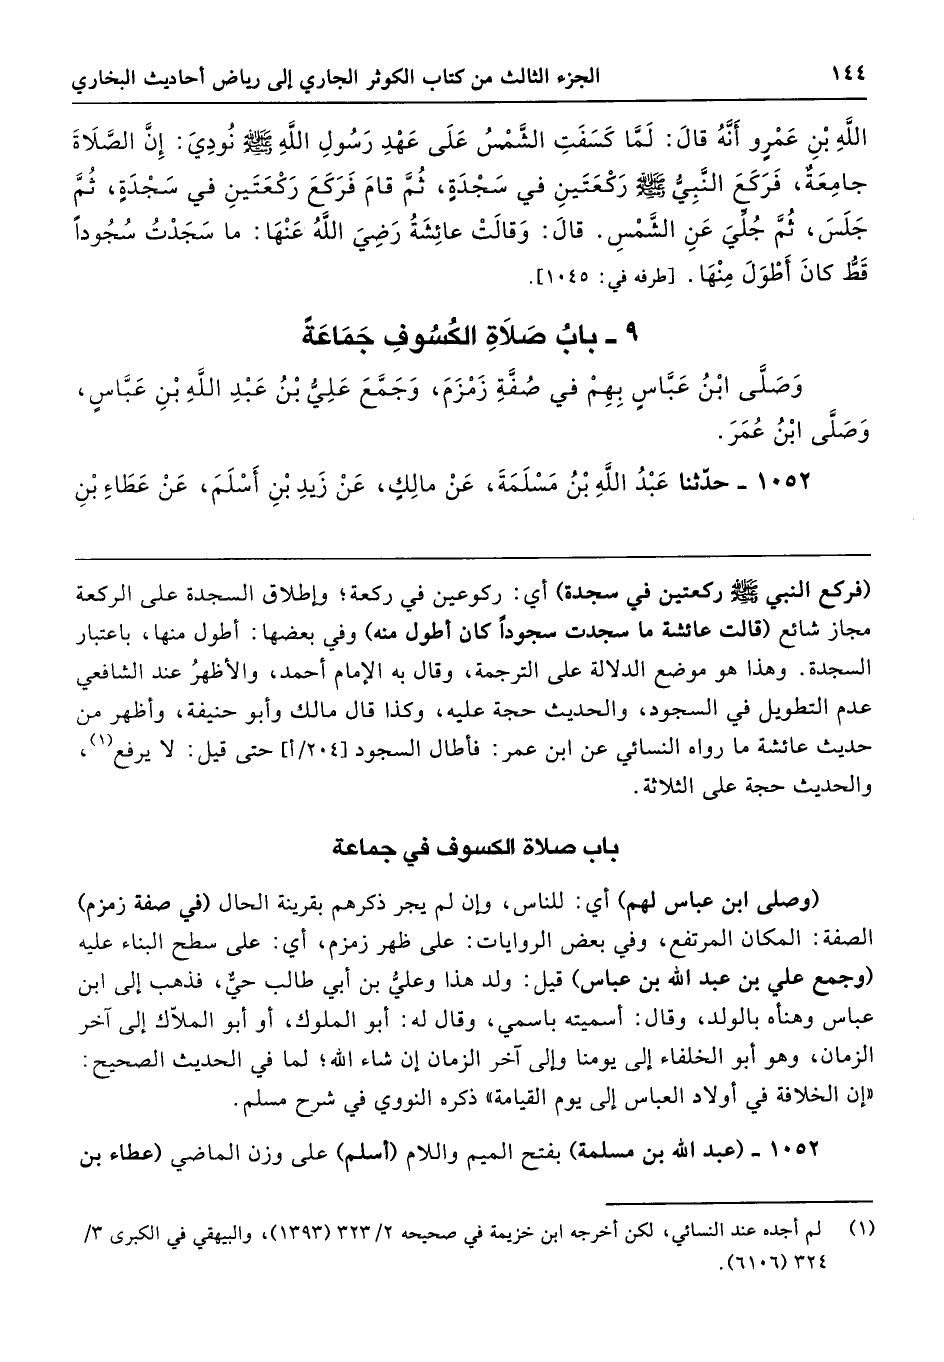 ١٤٤ الجزء الثالث من كتاب الكوثر الجاري إلى رياض أحاديث البخاري
اللَّهِ بْنِ عَمْرٍو أَنَّهُ قالَ: لَمَّا كَسَفَتِ الشَّمْسُ عَلَى عَهْدِ رَسُولِ اللَّهِ ﷺ نُودِيَ: إِنَّ الصَّلَاةَ
جامِعَةٌ، فَرَكَعَ النَّبِيُّ ﷺ رَكْعَتَينِ في سَجْدَةٍ، ثُمَّ قامَ فَرَكَعَ رَكْعَتَينِ في سَجْدَةٍ، ثُمَّ
جَلَسَ، ثُمَّ جُلِّيَ عَنِ الشَّمْسِ. قالَ: وَقالَتْ عائِشَةُ رَضِيَ اللَّهُ عَنْهَا: ما سَجَدْتُ سُجُوداً
قَطُّ كانَ أَطْوَلَ مِنْهَا. [طرفه في: ١٠٤٥].
٩ ـ بابُ صَلَاةِ الكُسُوفِ جَمَاعَةً
وَصَلَّى ابْنُ عَبَّاسٍ بِهِمْ في صُفَّةِ زَمْزَمَ، وَجَمَّعَ عَلِيُّ بْنُ عَبْدِ اللَّهِ بْنِ عَبَّاسٍ،
وَصَلَّى ابْنُ عُمَرَ.
١٠٥٢ ـ حدّثنا عَبْدُ اللَّهِ بْنُ مَسْلَمَةَ، عَنْ مالِكٍ، عَنْ زَيدِ بْنِ أَسْلَمَ، عَنْ عَطَاءِ بْنِ
(فركع النبي ﷺ ركعتين في سجدة) أي: ركوعين في ركعة؛ وإطلاق السجدة على الركعة
مجاز شائع (قالت عائشة ما سجدت سجوداً كان أطول منه) وفي بعضها: أطول منها، باعتبار
السجدة. وهذا هو موضع الدلالة على الترجمة، وقال به الإمام أحمد، والأظهرُ عند الشافعي
عدم التطويل في السجود، والحديث حجة عليه، وكذا قال مالك وأبو حنيفة، وأظهر من
حديث عائشة ما رواه النسائي عن ابن عمر: فأطال السجود [٢٠٤/أ] حتى قيل: لا يرفع(١)،
والحديث حجة على الثلاثة.
باب صلاة الكسوف في جماعة
(وصلى ابن عباس لهم) أي: للناس، وإن لم يجر ذكرهم بقرينة الحال (في صفة زمزم)
الصفة: المكان المرتفع، وفي بعض الروايات: على ظهر زمزم، أي: على سطح البناء عليه
(وجمع علي بن عبد الله بن عباس) قيل: ولد هذا وعليُّ بن أبي طالب حيٌّ، فذهب إلى ابن
عباس وهنأه بالولد، وقال: أسميته باسمي، وقال له: أبو الملوك، أو أبو الملاّك إلى آخر
الزمان، وهو أبو الخلفاء إلى يومنا وإلى آخر الزمان إن شاء الله؛ لما في الحديث الصحيح:
«إن الخلافة في أولاد العباس إلى يوم القيامة» ذكره النووي في شرح مسلم.
١٠٥٢ ـ (عبد الله بن مسلمة) بفتح الميم واللام (أسلم) على وزن الماضي (عطاء بن
(١) لم أجده عند النسائي، لكن أخرجه ابن خزيمة في صحيحه ٣٢٣/٢ (١٣٩٣)، والبيهقي في الكبرى ٣/
٣٢٤ (٦١٠٦).